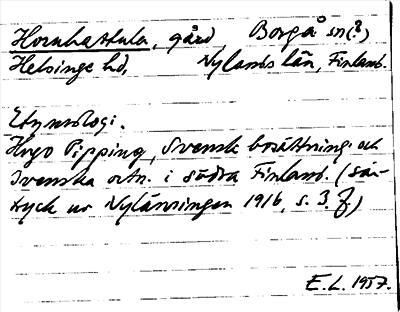 Hornhattula, gård Borgå sn(?)
Helsinge hd, Nylands län, Finland.
Etymologi.
Hugo Pipping, Svensk bosättning och
svenska ortn. i södra Finland. (sär-
tryck ur Nylänningen 1916, s. 3.f)
E.L. 1957.